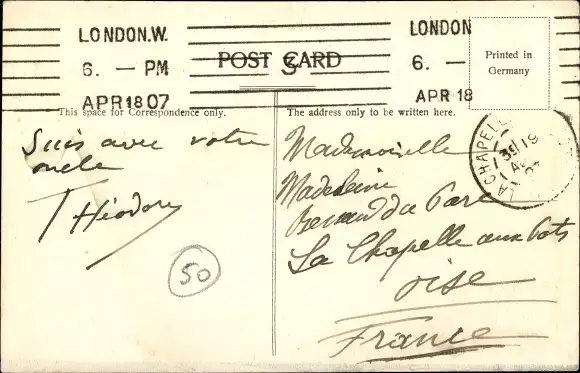 LONDON.W.
6. — PM
APR 18 07
LONDON
6. —
APR 18
POST CARD
Printed in
Germany
This space for Correspondence only.
The address only to be written here.
LA CHAPELLE
Suis avec votre
oncle
Théodore
50
Mademoiselle
Madeleine
Bernard du Parc
La Chapelle aux Pots
Oise
France